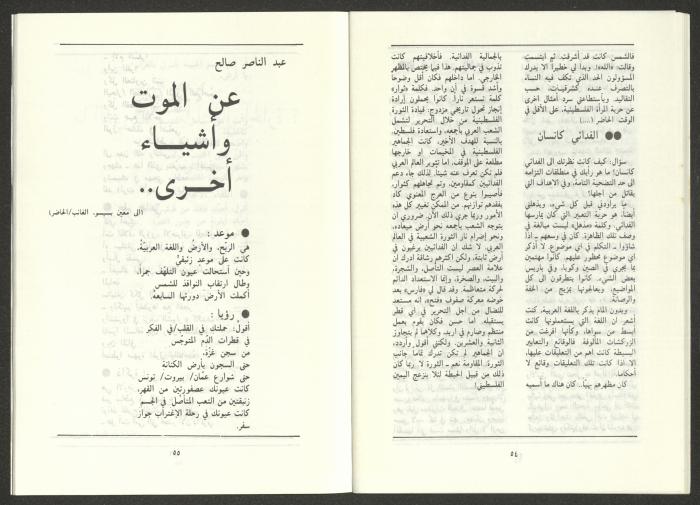 فالشمس كانت قد أشرقت. ثم ابتسمت
وقالت: «الله». وبدا لي خطيراً الا يدرك
المسؤولون الحد الذي تكف فيه النساء
بالتصرف عنده كشرقيات، حسب
التقاليد. وبأستطاعتي سرد أمثال اخرى
عن حرية المرأة الفلسطينية، على الأقل في
الوقت الحاضر (....)
●● الفدائي كانسان
سؤال: كيف كانت نظرتك الى الفدائي
كانسان؛ ما هو رأيك في منطلقات التزامه
الى حد التضحية التامة، وفي الاهداف التي
يقاتل من اجلها؟
ما يراودني قبل كل شيء، ويذهلني
أيضاً، هو حرية التعبير التي كان يمارسها
الفدائي. وكلمة «مذهل» ليست مبالغة في
وصف تلك الظاهرة. كان في وسعهم ـ اذا
شاؤوا ـ التكلم في اي موضوع. لا أذكر
اي موضوع محظور عليهم. كانوا مهتمين
بما يجري في الصين وكوبا، وفي باريس
بعض الشيء. كانوا يتطرقون الى كل
المواضيع، ويعالجونها بمزيج من الخفة
والرصانة.
وبدون المام يذكر باللغة العربية، كنت
أشعر ان اللغة التي يستعملونها كانت
ابسط من سواها، وكأنها افرغت من
الزركشات المألوفة. فالوقائع والتعابير
البسيطة كانت اهم من التعليقات عليها،
الا اذا كانت تلك التعليقات وقائع لا
أحكاما.
كان مظهرهم بهيّا.. كان هناك ما أسميه
بالجمالية الفدائية. فأخلاقيتهم كانت
تذوب في جماليتهم. هذا فيما يختص بالمظهر
الخارجي. اما داخلهم فكان أقل وضوحاً
وأشد قسوة في آن واحد. فكلمة «ثوار»
كلمة تستعر ناراً. كانوا يحملون إرادة
إنجاز تحول تاريخي مزدوج: قيادة الثورة
الفلسطينية من خلال التحرير لتشمل
الشعب العربي بأجمعه، واستعادة فلسطين.
بالنسبة للهدف الأخير، كانت الجماهير
الفلسطينية في المخيمات او خارجها
مطلعة على الموقف. اما تثوير العالم العربي
فلم تكن تعرف عنه شيئا. لذلك جاء دعم
الفدائيين كمقاومين، وتم تجاهلهم كثوار،
فأصيبوا بنوع من العرج المعنوي كاد
يفقدهم توازنهم. من الممكن تغيير كل هذه
الأمور وربما جرى ذلك الآن. ضروري ان
يتوجه الشعب بأجمعه نحو أرض ميعاده،
ونحو إضرام نار الثورة الشعبية في العالم
العربي. لا شك ان الفدائيين يرغبون في
أرض ثابتة. ولكن اكثرهم رشاقة ادرك ان
علامة العصر ليست التأصل، والشجرة،
والبيت، والصخرة، وإنما الاستعداد الدائم
لحركة متعاظمة. وقد قال لي «فارس» بعد
خوضه معركة صفوف «فتح»، انه مستعد
للنضال من أجل التحرير في أي قطر
يستقبله. اما حسن فكان يقوم بعمل
منتظم وصارم في اربد. وكلاهما لم يتجاوز
الثانية والعشرين. ولكنني أقول وأردد،
ان الجماهير لم تكن تدرك تماما جانب
الثورة: المقاومة نعم ـ الثورة لا. ربما كان
ذلك من قبيل الحيطة لئلا ينزعج اليمين
الفلسطيني!
٥٤
عبد الناصر صالح
عن الموت
وأشياء
أخرى..
(الى معين بسيسو.. الغائب/الحاضر)
● موعد :
هي الرّيح، والأرضُ واللغة العربيّةُ.
كانت على موعد زنبقيٍّ
وحين استحالت عيون التلهّف جمراً،
وطال ارتقاب النوافذ للشمسِ
أكملت الأرض دورتها السابعة.
● رؤيا :
أقول: حملتك في القلب/في الفكر
في قطرات الدّم المتوجّس
من سجن غزّة.
حتى السجون بأرض الكنانة
حتى شوارع عمّان/ بيروت/ تونس
كانت عيونك عصفورتين من القهر،
زنبقتين من التعب المتأصل في الجسم
كانت عيونك في رحلة الإغتراب جواز
سفر.
٥٥